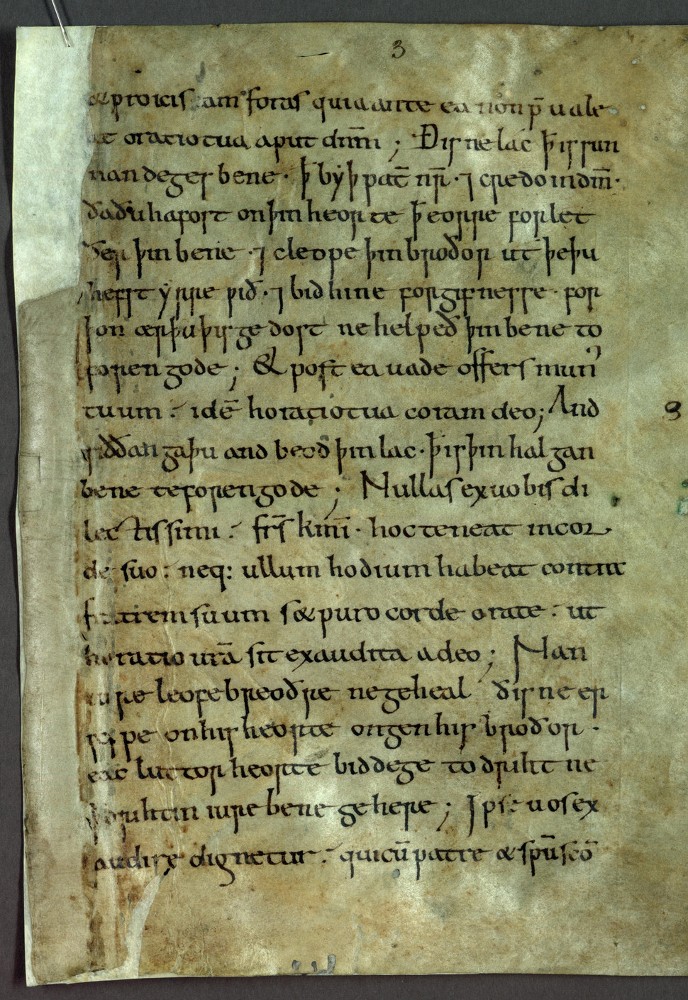 3
& proicis am foras quia ante ea non p̄ uale
at oratio tua aput dnm̄ ; Ðis ne lac þis sun
nan deges bene · þ byþ pat̄ nr̄ · ⁊ credo in dm̄ ·
ða ðu hafost on þin heorte þ eorre forlet
þin bene · ⁊ cleope þin broðor ut þe þu
hefst yrre wið · ⁊ bid hine forgifnesse · for
þon ær þu þis gedost ne helpeð þin bene to
foren gode ; Et post ea uade offers mun
tuum : idē horatio tua coram deo ; And
siððan ga þu and beod þin lac · þ is þin halgan
bene teforen gode ; Nullas ex uobis di
lectissimi : fr̄s kmī · hoc teneat in cor
de suo : neq: ullum hodium habeat contra
fratrem suum s& puro corde orate : ut
horatio urā sit exaudita a deo ; Nan
iure leofe breoðre ne geheal ðis ne er
on his heorte ongen his broðor ·
eac luttor heorte biddege to driht ne
þ drihtin iure bene gehere ; Ipse uos ex
audire dignetur : qui cū patre & spū scō
3